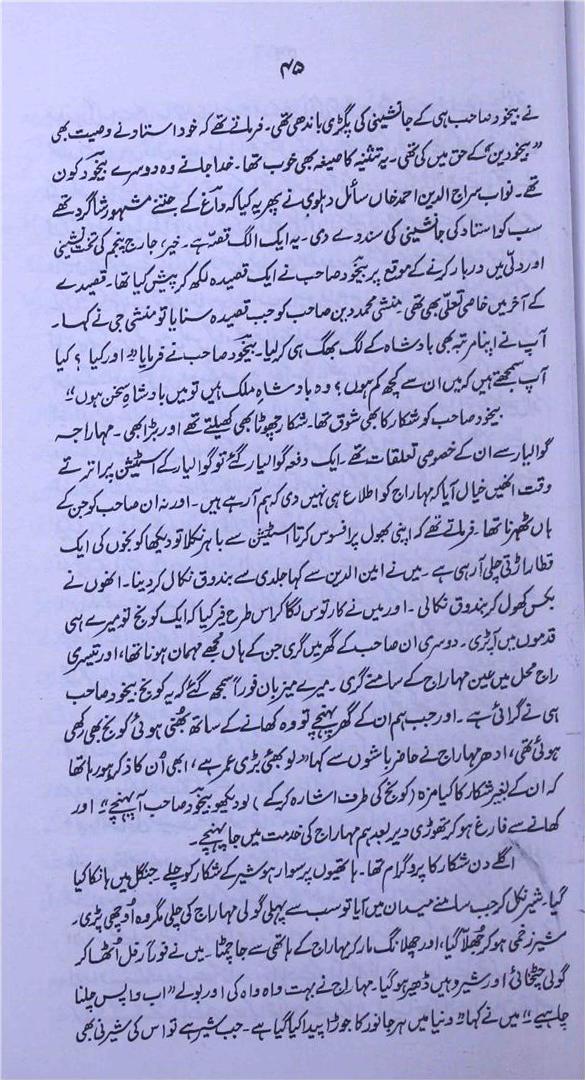 ۴۵
نے بیخود صاحب ہی کے جانشینی کی پگڑی باندھی تھی۔ فرماتے تھے کہ خود استاد نے وصیت بھی
”بیخودین“ کے حق میں کی تھی۔ یہ تثنیہ کا صیغہ بھی خوب تھا۔ خدا جانے وہ دوسرے بیخود کون
تھے۔ نواب سراج الدین احمد خاں سائل دہلوی نے پھر یہ کیا کہ داغ کے جتنے مشہور شاگرد تھے
سب کو استاد کی جانشینی کی سند دے دی۔ یہ ایک الگ قصّہ ہے۔ خیر، جارج پنجم کی تخت نشینی
اور دلّی میں دربار کرنے کے موقع پر بیخود صاحب نے ایک قصیدہ لکھ کر پیش کیا تھا۔ قصیدے
کے آخر میں خاصی تعلّی بھی تھی۔ منشی محمد دین صاحب کو جب قصیدہ سنایا تو منشی جی نے کہا۔
آپ نے اپنا مرتبہ بھی بادشاہ کے لگ بھگ ہی کر لیا۔ بیخود صاحب نے فرمایا ”اور کیا؟ کیا
آپ سمجھتے ہیں کہ میں ان سے کچھ کم ہوں؟ وہ بادشاہِ ملک ہیں تو میں بادشاہِ سخن ہوں“
بیخود صاحب کو شکار کا بھی شوق تھا۔ شکار چھوٹا بھی کھیلتے تھے اور بڑا بھی۔ مہاراجہ
گوالیار سے ان کے خصوصی تعلقات تھے۔ ایک دفعہ گوالیار گئے تو گوالیار کے اسٹیشن پر اترتے
وقت انھیں خیال آیا کہ مہاراج کو اطلاع ہی نہیں دی کہ ہم آ رہے ہیں۔ اور نہ ان صاحب کو جن کے
ہاں ٹھہرنا تھا۔ فرماتے تھے کہ اپنی بھول پر افسوس کرتا اسٹیشن سے باہر نکلا تو دیکھا کونجوں کی ایک
قطار اڑتی چلی آ رہی ہے۔ میں نے امین الدین سے کہا جلدی سے بندوق نکال کر دینا۔ انھوں نے
بکس کھول کر بندوق نکالی۔ اور میں نے کارتوس لگا کر اس طرح فیر کیا کہ ایک کونج تو میرے ہی
قدموں میں آپڑی۔ دوسری ان صاحب کے گھر میں گری جن کے ہاں مجھے مہمان ہونا تھا، اور تیسری
راج محل میں عین مہاراج کے سامنے گری۔ میرے میزبان فوراً سمجھ گئے کہ یہ کونج بیخود صاحب
ہی نے گرائی ہے۔ اور جب ہم ان کے گھر پہنچے تو وہ کھانے کے ساتھ بھُنی ہوئی کونج بھی رکھی
ہوئی تھی، ادھر مہاراج نے حاضر باشوں سے کہا ”لو بھئی بڑی عمر ہے، ابھی اُن کا ذکر ہو رہا تھا
کہ ان کے بغیر شکار کا کیا مزہ (کونج کی طرف اشارہ کر کے) لو دیکھو بیخود صاحب آ پہنچے“۔ اور
کھانے سے فارغ ہو کر تھوڑی دیر بعد ہم مہاراج کی خدمت میں جا پہنچے۔
اگلے دن شکار کا پروگرام تھا۔ ہاتھیوں پر سوار ہو شیر کے شکار کو چلے جنگل میں ہانکا کیا
گیا۔ شیر نکل کر جب سامنے میدان میں آیا تو سب سے پہلی گولی مہاراج کی چلی مگر وہ اُوچھی پڑی۔
شیر زخمی ہو کر جُھلّا گیا، اور چھلانگ مار کر مہاراج کے ہاتھی سے جا چمٹا۔ میں نے فوراً رفل اُٹھا کر
گولی چٹخائی اور شیر وہیں ڈھیر ہو گیا۔ مہاراج نے بہت واہ واہ کی اور بولے ”اب واپس چلنا
چاہیے“ میں نے کہا ”دنیا میں ہر جانور کا جوڑا پیدا کیا گیا ہے۔ جب شیر ہے تو اس کی شیرنی بھی